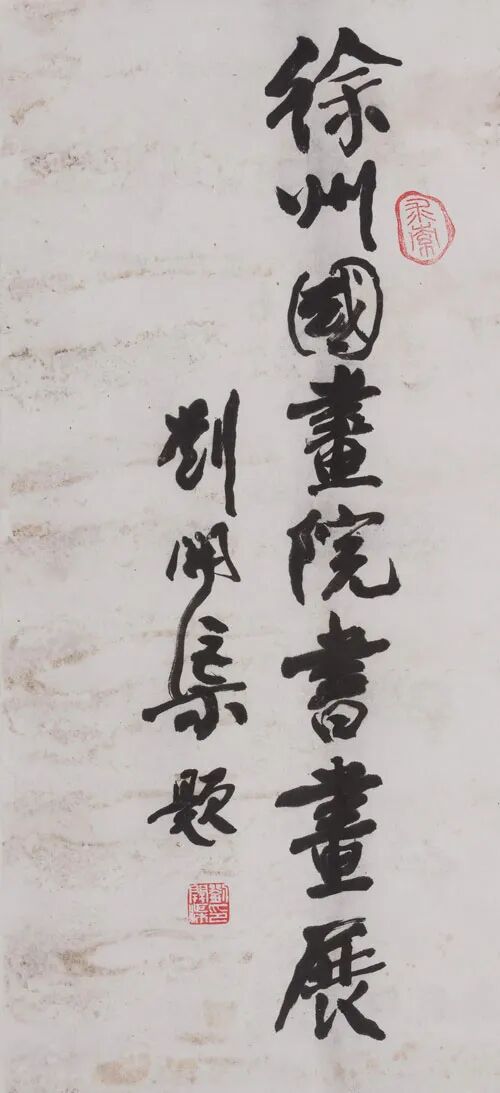 徐州國畫院書畫展
劉開渠題
劉開渠印